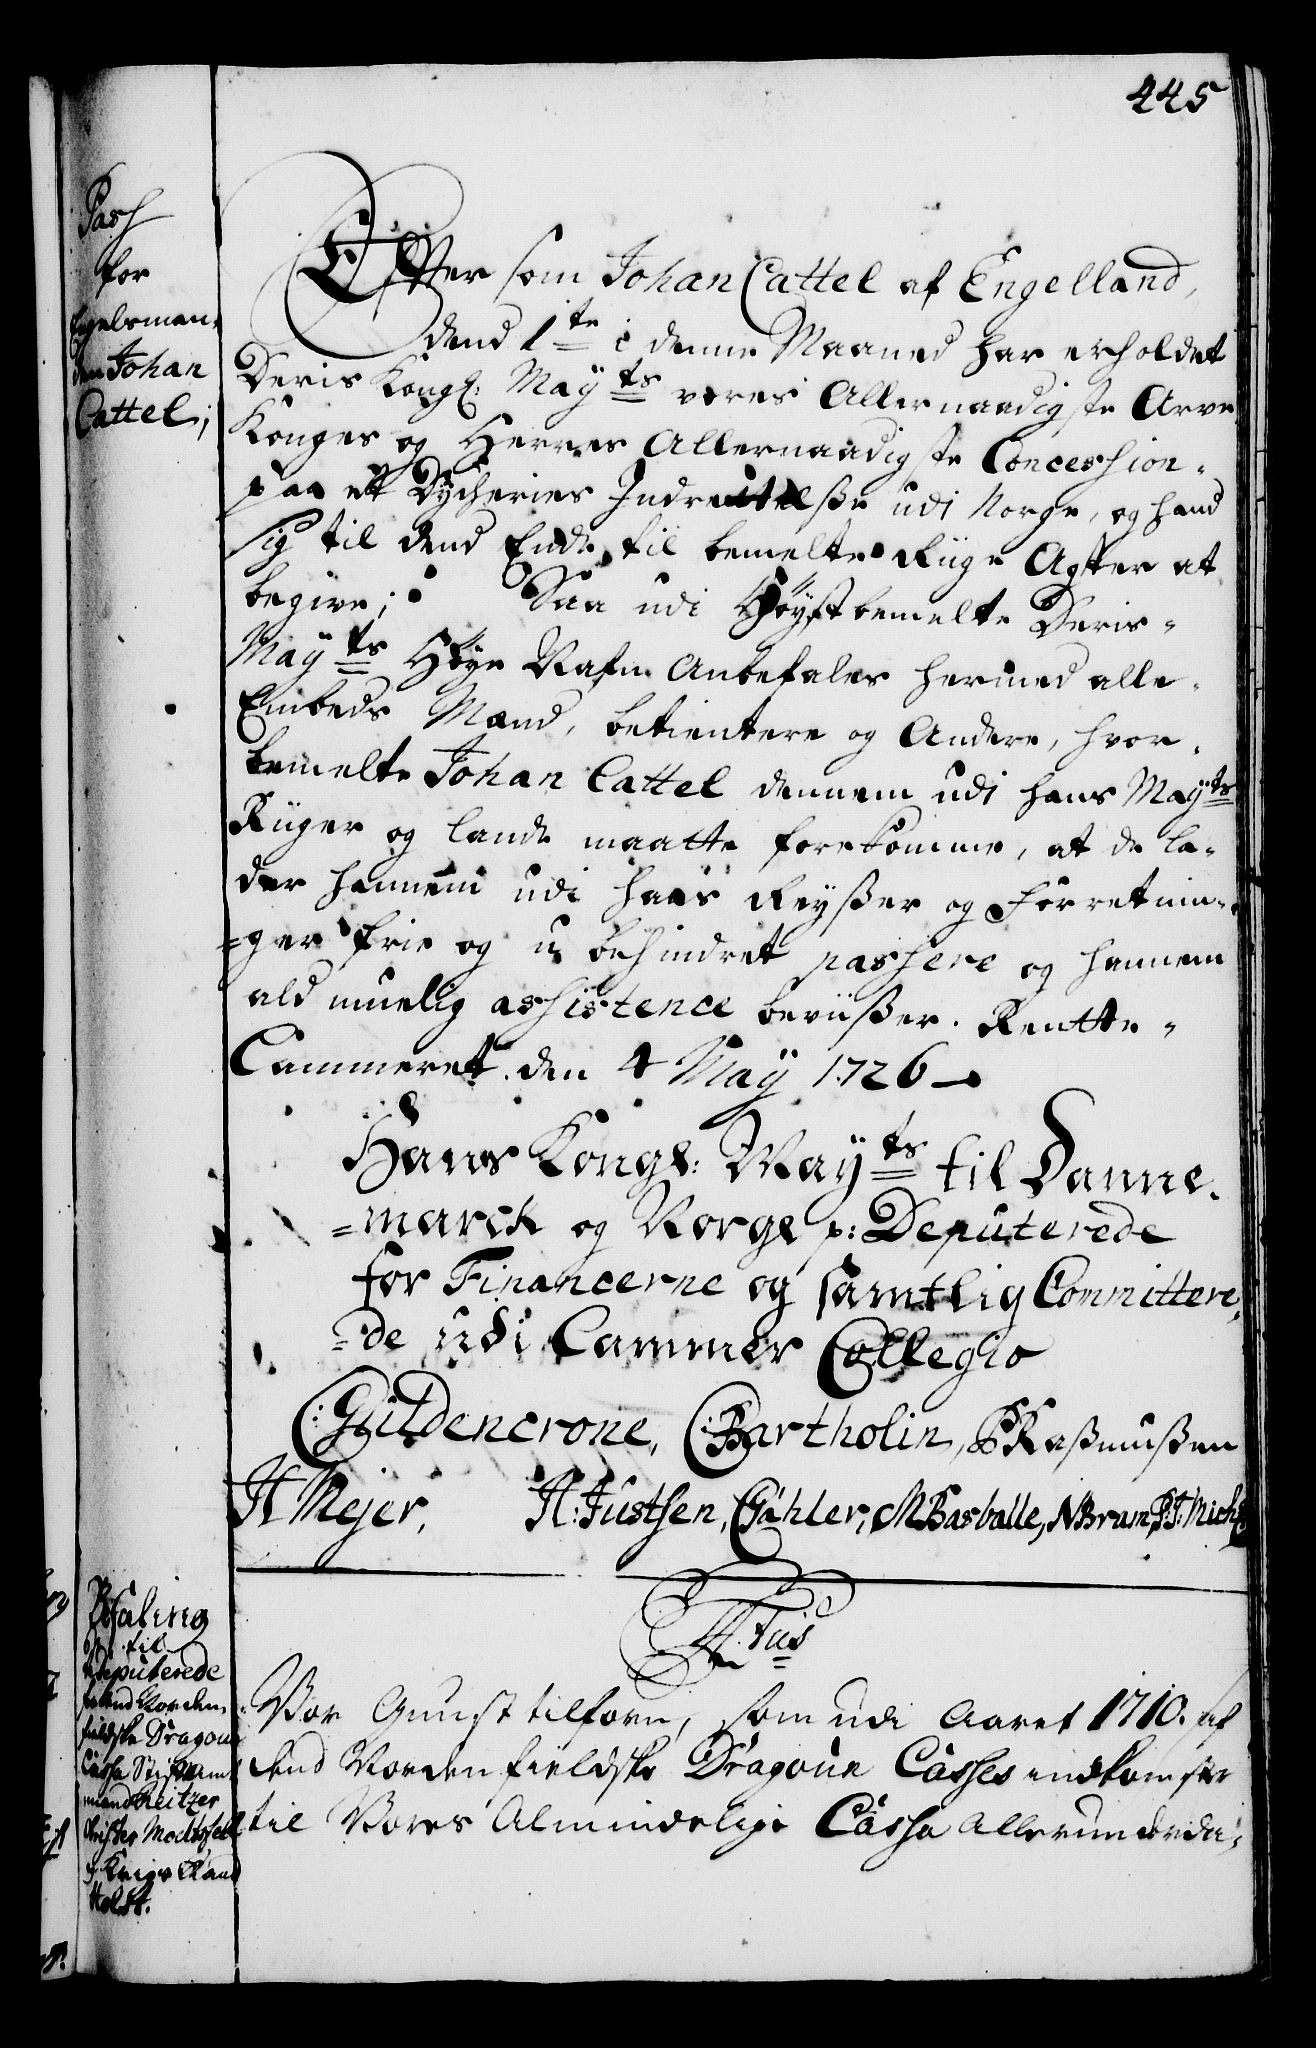 445
Pass
for
Engelsman-
den Johan
Cattel;
Efter som Johan Cattel af Engelland,
dend 1te i denne Maaned har erholdet
Deris Kongl: Mayts vores Allernaadigste Arve
Konges og Herres Allernaadigste Concession-
paa et Indrettelsse udi Norge, og hand
sig til dend Ende til bemelte Riige Agter at
begive; Saa udi Høystbemelte Deris-
Mayts Høye Nafn Anbefales hermed alle-
Embeds Mænd, betientere og Andre, hvor-
bemelte Johan Cattel dennem udi hans Mayts
Riiger og Lande maatte forekomme, at de la-
der hannem udi hans Reysser og Forretnin-
=ger frie og u behindret passere og hannem
ald muelig assistence beviisser. Rentte-
Cammeret. den 4 May 1726
Hans Kongl: Mayts til Danne-
=marck og Norge p: Deputerede
for Financerne og samtlig Committere,
=de udi Cammer Collegio
C: Güldencrone, C: Bartholin, Rassmussen
H Mejer, H: Justsen, C Gähler, M Basballe, N Bram, P. T: Mich
Befaling
til
Deputerede
ved Norden-
fieldske Dragoun
Cassa Stiftamt
mand Kreitzer
Mechssell
og Krigs Raad
Holst.
Titus
Vor Gunst tilforn, som udi Aaret 1710. af
dend Nordenfieldske Dragoun Casses indkomster
til Vores Almindelige Cassa Allerunderda-